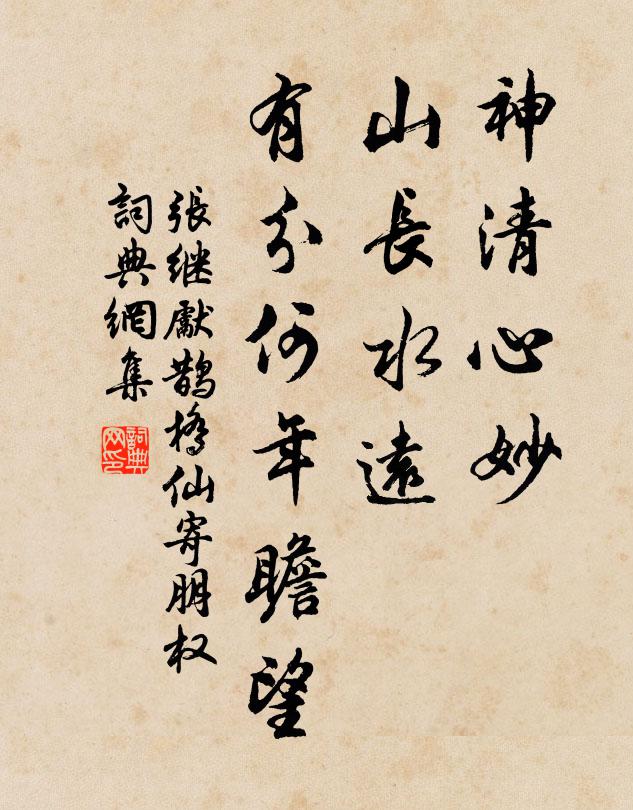 神清心妙
山長水遠
有分何年瞻望
張继獻鵲橋仙寄朋权
詞典網集
詞典网印